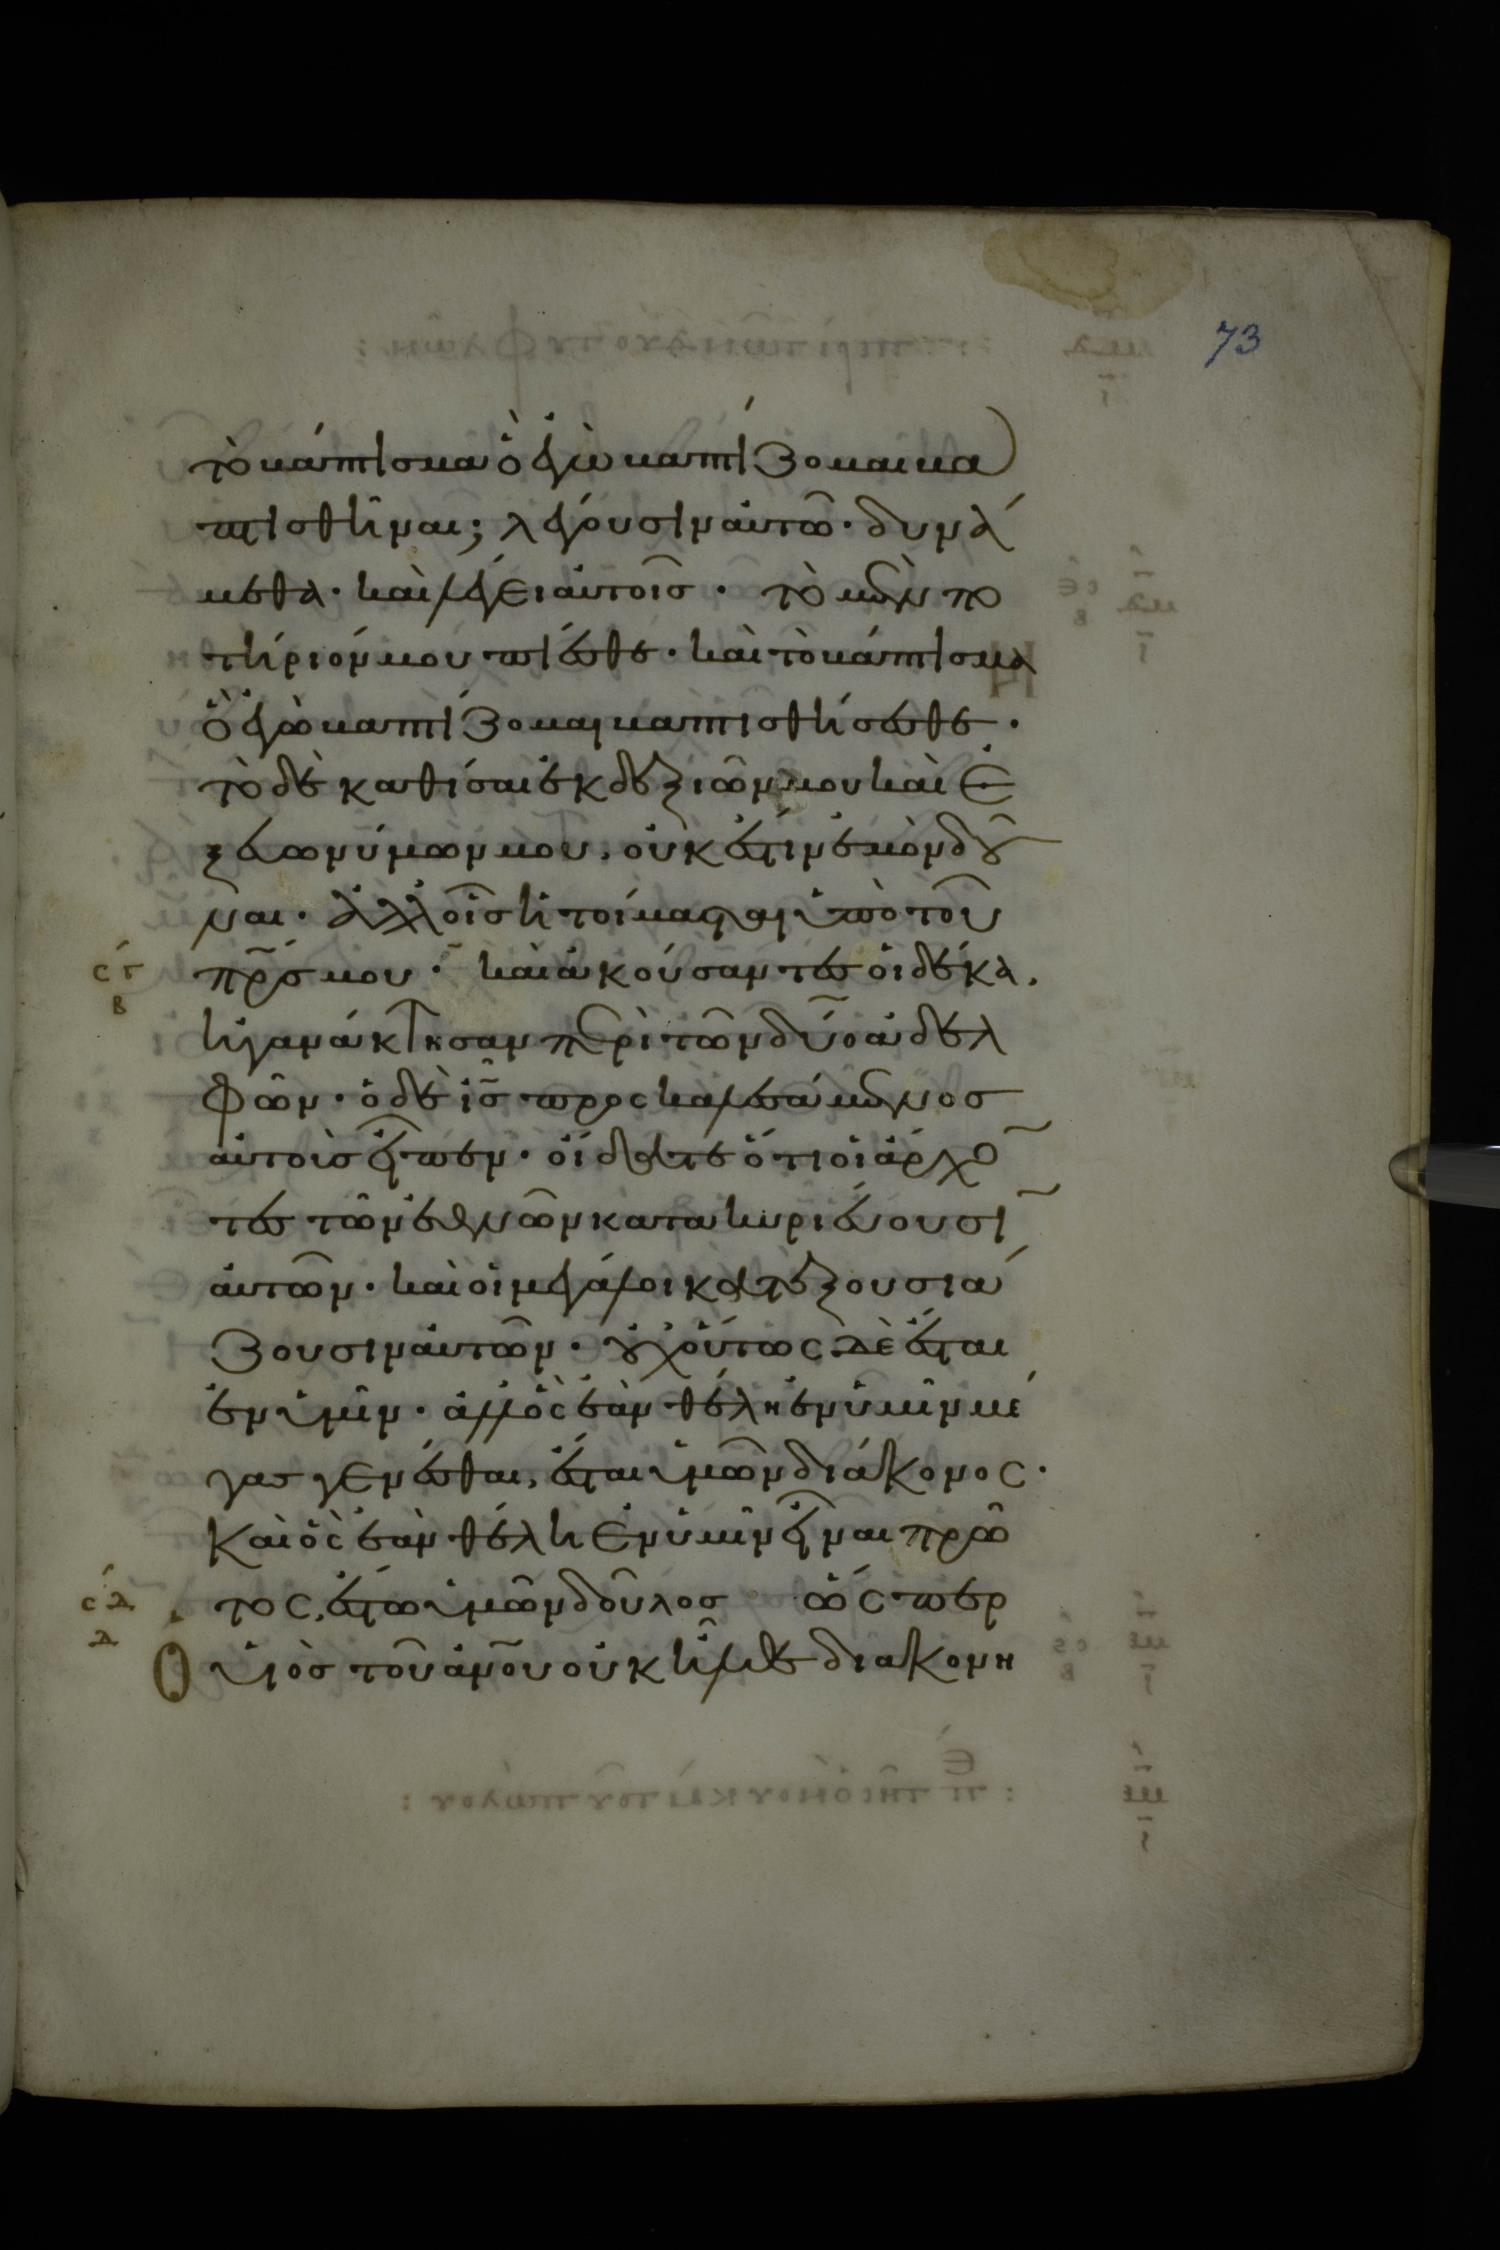 73
τὸ βάπτισμα ὃ ἐγὼ βαπτίζομαι βα
πτισθῆναι; λέγουσιν αὐτῶ· δυνά
μεθα· καὶ λέγει αὐτοῖς· τὸ μὲν πο
τήριόν μου πίεσθε· καὶ τὸ βάπτισμα
ὃ ἐγὼ βαπτίζομαι βαπτισθήσεσθε·
τὸ δὲ καθίσαι ἐκ δεξιῶν μου καὶ ἐ
ξ εὐωνύμων μου, οὐκ ἔστιν ἐμὸν δοῦ
ναι· ἀλλ οἷς ἡτοίμασται ὑπὸ τοῦ
πρς μου· καὶ ἀκούσαντες οἱ δέκα,
ἠγανάκτησαν περὶ τῶν δύο ἀδελ
φῶν· ὁ δὲ ις προσκαλεσάμενος
αὐτοὺς εἶπεν· οἴδατε ὅτι οἱ ἄρχο
τες τῶν ἐθνῶν κατακυριεύουσι
αὐτῶν· καὶ οἱ μεγάλοι κατεξουσιά
ζουσιν αὐτῶν· οὐχ οὕτως δὲ ἔσται
ἐν ὑμῖν· ἀλλ ὃς ἐὰν θέλη ἐν ὑμῖν μέ
γας γενέσθαι, ἔσται ὑμῶν διάκονος·
καὶ ὃς ἐὰν θέλη ἐν ὑμῖν εἶναι πρῶ
τος, ἔστω ὑμῶν δοῦλος ὥσπερ
Ο υἱὸς τοῦ ανου οὐκ ἦλθε διακονη
σγ
β
σδ
δ